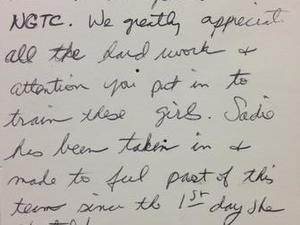 NGTC. We greatly appreciate
all the hard work &
attention you put in to
train these girls. Sadie
has been taken in &
made to feel part of this
team since the 1st day she